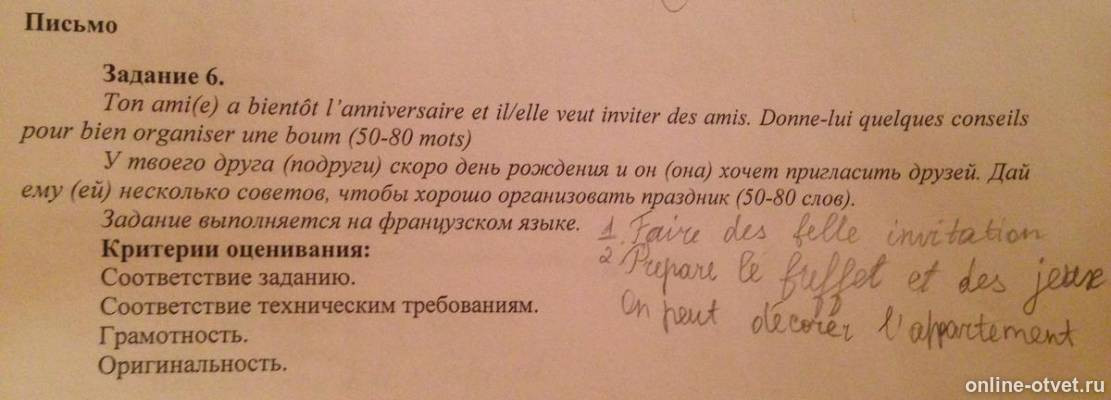 Письмо
Задание 6.
Ton ami(e) a bientôt l'anniversaire et il/elle veut inviter des amis. Donne-lui quelques conseils
pour bien organiser une boum (50-80 mots)
У твоего друга (подруги) скоро день рождения и он (она) хочет пригласить друзей. Дай
ему (ей) несколько советов, чтобы хорошо организовать праздник (50-80 слов).
Задание выполняется на французском языке.
Критерии оценивания:
Соответствие заданию.
Соответствие техническим требованиям.
Грамотность.
Оригинальность.
1. Faire des belle invitation
2. Prepare le buffet et des jeux
On peut décorer l'appartement
online-otvet.ru